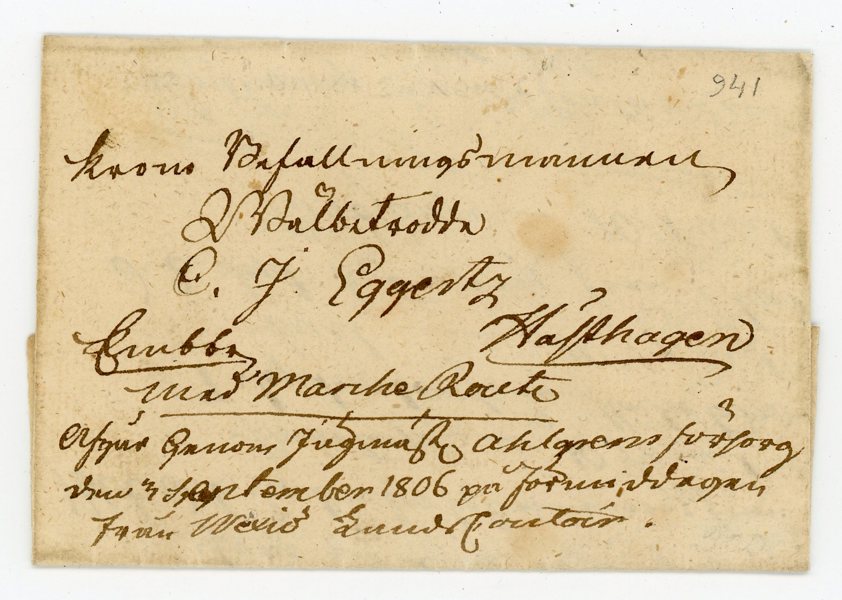 941
Krono Befallningsmannen
Wälbetrodde
C. J Eggertz
Hästhagen
Embte
med Marche Route
Afgår Genom Jägmäst Ahlgrens försorg
den 3 September 1806 på förmiddagen
från Wexiö Lands Contoir.